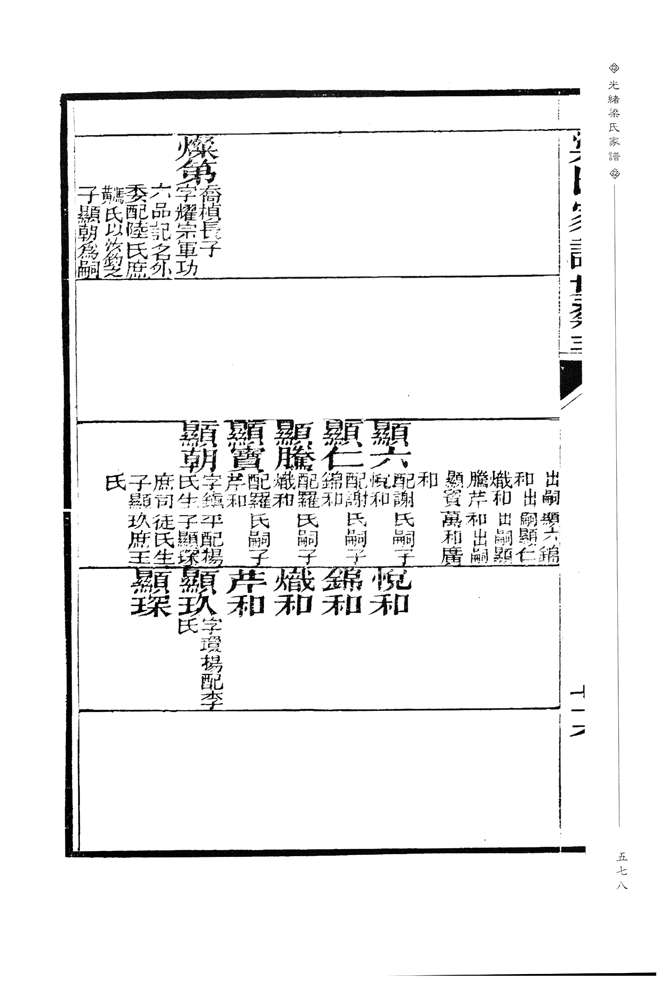 光緒梁氏家譜
五七八
燦第
喬楨長子
字耀宗軍功
六品記名外
委配陸氏庶
氏以汝鈞之
子顯朝為嗣
出嗣顯六錦
和出嗣顯仁
熾和出嗣顯
騰芹和出嗣
顯賓萬和廣
和
顯六
配謝氏嗣子
悅和
顯仁
配謝氏嗣子
錦和
顯騰
配羅氏嗣子
熾和
顯賓
配羅氏嗣子
芹和
顯朝
字鎮平配楊
氏生子顯琛
庶司徒氏生
子顯玖庶王
氏
悅和
錦和
熾和
芹和
顯玖
字瓊楊配李
氏
顯琛